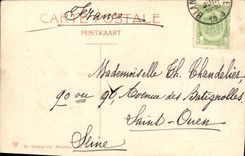 France
CARTE POSTALE
POSTKAART
Mademoiselle Ch. Chandelier,
90 ou 96, Avenue des Batignolles
Saint-Ouen
Seine